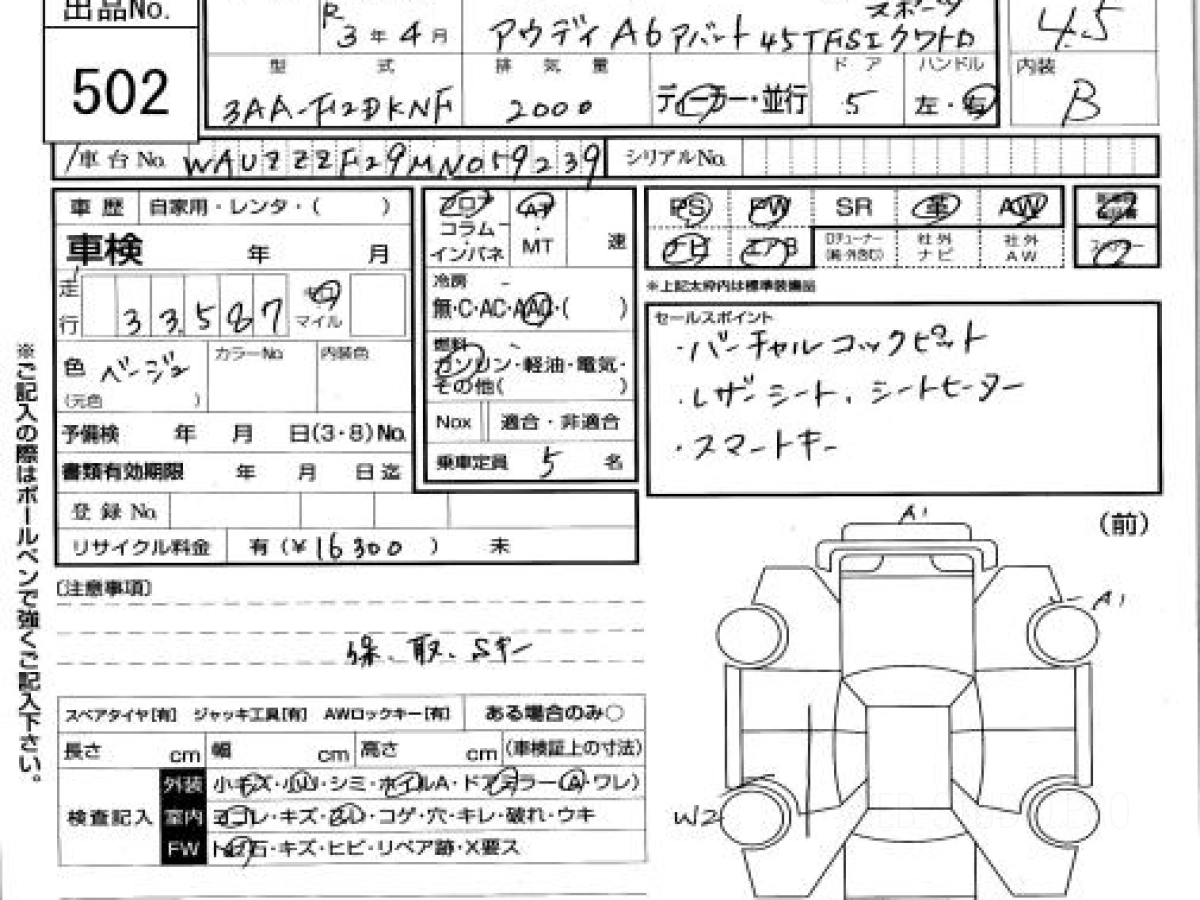 出品No.
502
R 3年4月
アウディA6アバント45TFSIクワトロ
スポーツ
4.5
型式
排気量
ドア
ハンドル
内装
3AA-F2DKNF
2000
ディーラー・並行
5
左・右
B
車台No. WAUZZZF29MN059239
シリアルNo.
車歴 自家用・レンタ・( )
フロア
コラム
インパネ
AT
MT
速
PS PW SR 革 AW
ナビ エアB
Dチューナー
社外ナビ
社外AW
車検 年 月
走行 33,587
マイル
冷房
無・C・AC・AAC・( )
※上記太枠内は標準装備品
セールスポイント
・バーチャルコックピット
・レザーシート、シートヒーター
・スマートキー
色 ベージュ
(元色 )
カラーNo.
内装色
燃料
ガソリン・軽油・電気・
その他( )
予備検 年 月 日(3・8)No.
Nox 適合・非適合
書類有効期限 年 月 日迄
乗車定員 5 名
登録No.
リサイクル料金 有 (¥16300 ) 未
※ご記入の際はボールペンで強くご記入下さい。
〔注意事項〕
保、取、Sキー
(前)
A1
A1
W2
スペアタイヤ[有] ジャッキ工具[有] AWロックキー[有] ある場合のみ○
長さ cm 幅 cm 高さ cm (車検証上の寸法)
検査記入
外装 小キズ・小凹・シミ・ホイルA・ドアミラー(A・ワレ)
室内 ヨゴレ・キズ・スレ・コゲ・穴・キレ・破れ・ウキ
FW トビ石・キズ・ヒビ・リペア跡・X要ス